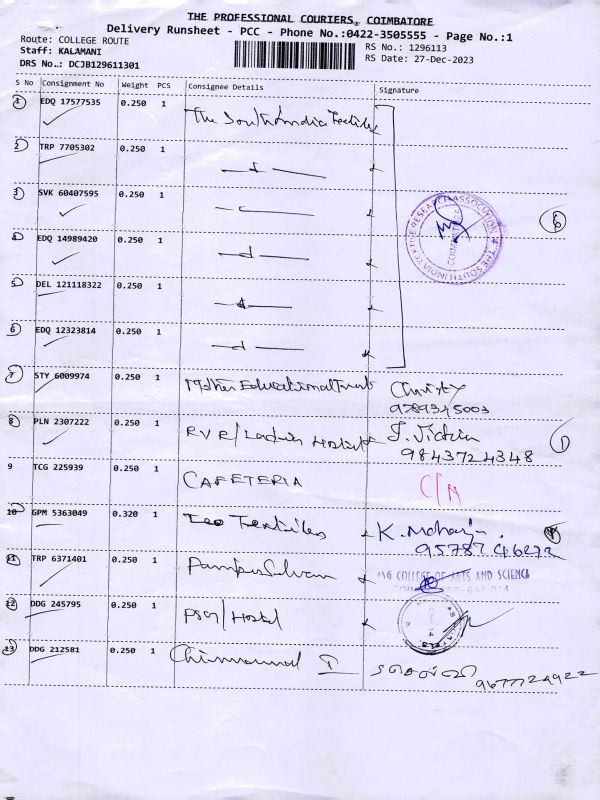 THE PROFESSIONAL COURIERS, COIMBATORE
Delivery Runsheet - PCC - Phone No.:0422-3505555 - Page No.:1
Route: COLLEGE ROUTE
Staff: KALAMANI
DRS No.: DCJB129611301
RS No.: 1296113
RS Date: 27-Dec-2023
S No Consignment No Weight PCS Consignee Details Signature
1 EDQ 17577535 0.250 1 The South India Textiles
2 TRP 7705302 0.250 1
3 SVK 60407595 0.250 1
THE SOUTH INDIA TEXTILE RESEARCH ASSOCIATION
6
4 EDQ 14989420 0.250 1
5 DEL 121118322 0.250 1
6 EDQ 12323814 0.250 1
7 STY 6009974 0.250 1 Mother Educational Trust Christy
9789345003
8 PLN 2307222 0.250 1 RVR/Ladies Hostel J. Victria
9843724348
1
9 TCG 225939 0.250 1 CAFETERIA
10 GPM 5363049 0.320 1 Teo Textiles K.
11 TRP 6371401 0.250 1
PSG COLLEGE OF ARTS AND SCIENCE
12 DDG 245795 0.250 1 PSG/Hostel
13 DDG 212581 0.250 1
9677724922